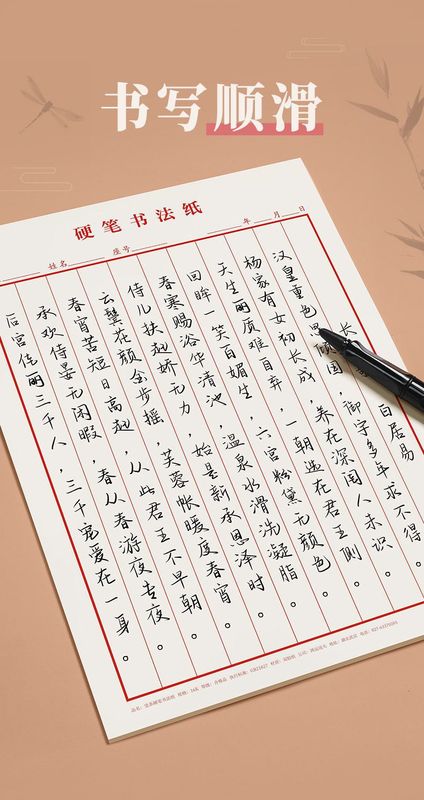 书写顺滑
硬笔书法纸
姓名 座号 年 月 日
长 白居易
汉皇重色思倾国，御宇多年求不得。
杨家有女初长成，养在深闺人未识。
天生丽质难自弃，一朝选在君王侧。
回眸一笑百媚生，六宫粉黛无颜色。
春寒赐浴华清池，温泉水滑洗凝脂。
侍儿扶起娇无力，始是新承恩泽时。
云鬓花颜金步摇，芙蓉帐暖度春宵。
春宵苦短日高起，从此君王不早朝。
承欢侍宴无闲暇，春从春游夜专夜。
后宫佳丽三千人，三千宠爱在一身。